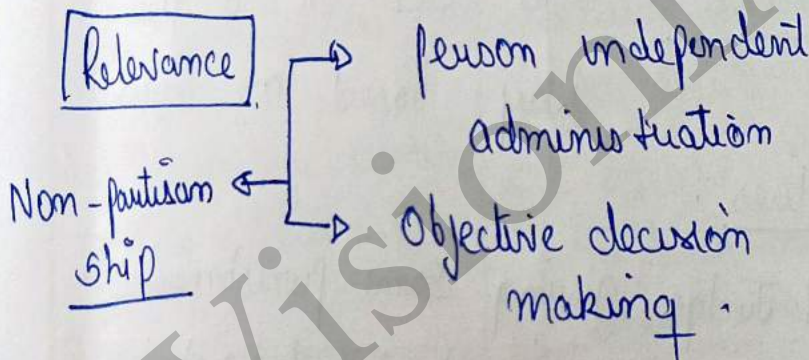 Relevance
person independent
administration
Non-partisan
ship
Objective decision
making.
Vision